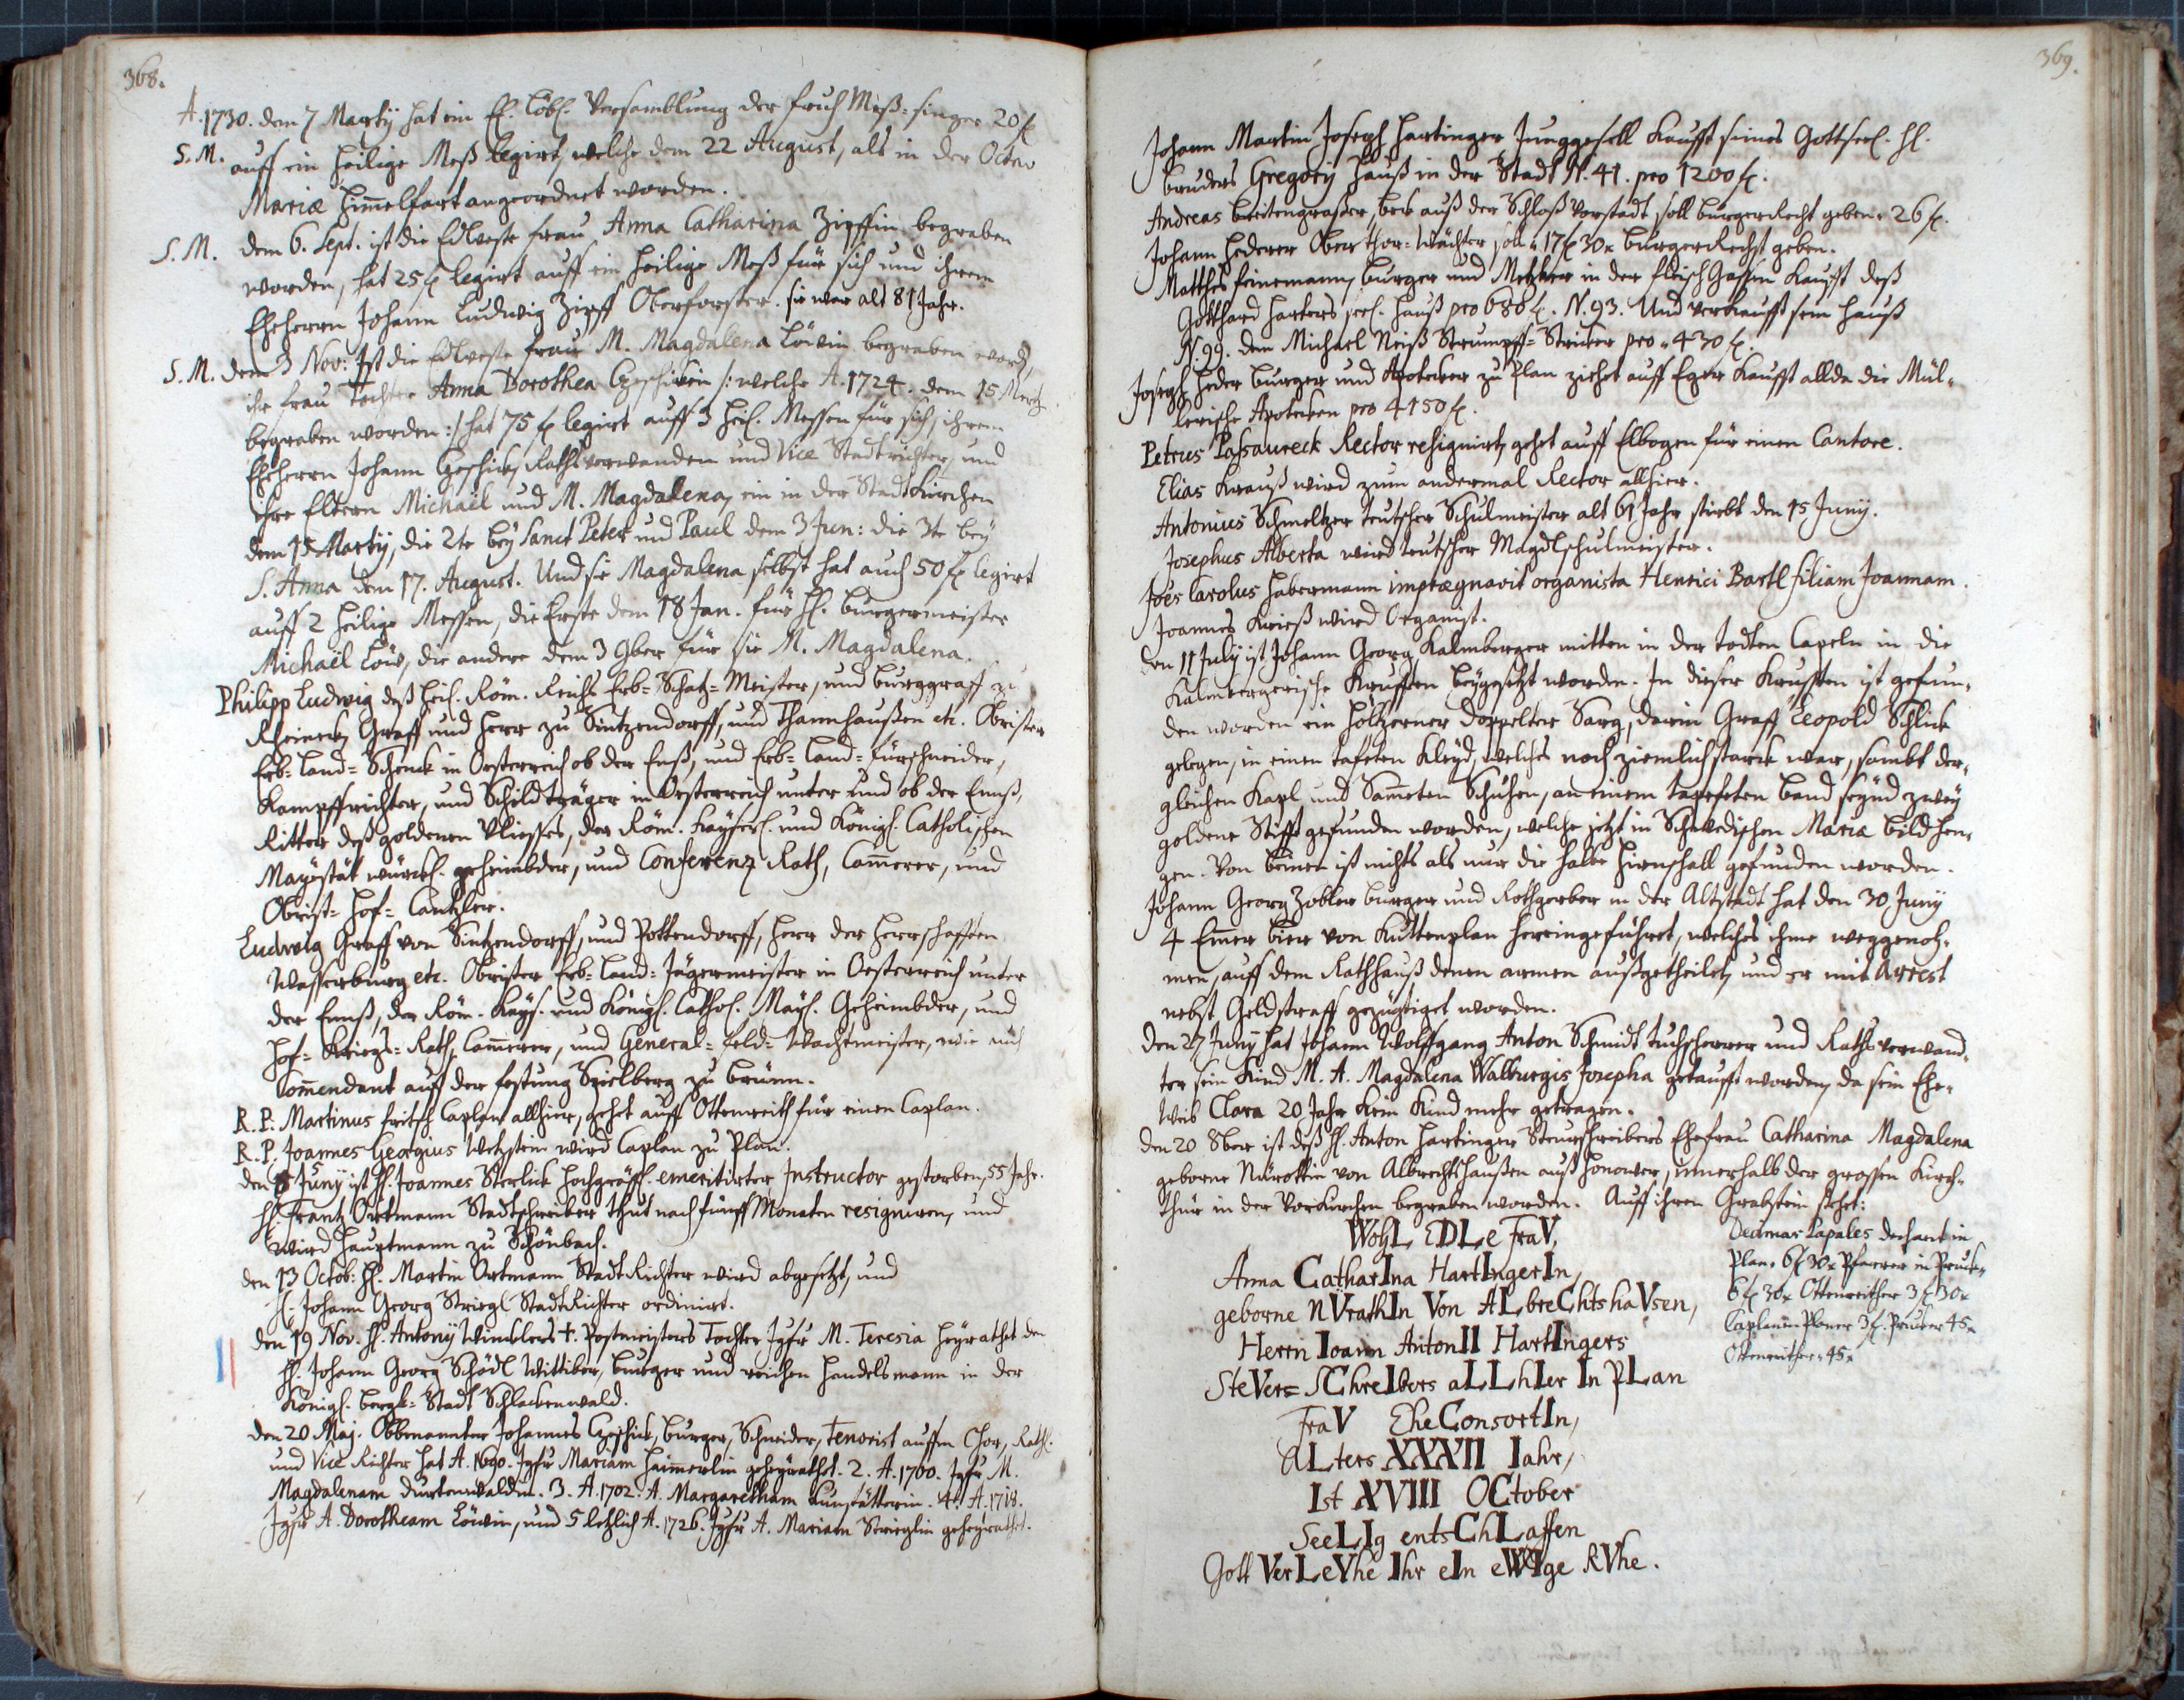 368.
A. 1730. dem 7 Martij hat ein E. Löbl. Versamblung der fruh Meß-singer 20 f
S. M. auff ein heilige Meß legirt, welche dem 22 August, als in der Octav
Mariæ Himelfart angeordnet worden.
S. M. dem 6. Sept. ist die Edlveste frau Anna Catharina Zipffin begraben
worden, hat 25 f legirt auff ein heilige Meß für sich und ihrem
Eheherrn Johann Ludwig Zipff Oberforster. sie war alt 81 Jahr.
S. M. dem 3 Nov: Ist die Edlveste frau M. Magdalena Löwin begraben word,
ihr frau Tochter Anna Dorothea Czeschikin /: welche A. 1724. dem 15 Mertz
begraben worden :/ hat 75 f legirt auff 3 heil. Messen für sich, ihrem
Eheherrn Johann Czeschick, Rathsverwanden und Vice Stadtrichter, und
ihre Eltern Michaël und M. Magdalena, ein in der StadtKirchen
dem 15 Martij, die 2te bey Sanct Peter und Paul dem 3 Jun: die 3te bey
S. Anna dem 17. August. Und sie Magdalena selbst hat auch 50 f legirt
auff 2 heilige Messen, die Erste dem 18 Jan. für H. burgermeister
Michaël Löw, die andere dem 3 9ber für sie M. Magdalena.
Philipp Ludwig deß heil. Röm. Reichs Erb-Schatz-Meister, und burggraff zu
Rheineck, Graff und Herr zu Sintzendorff, und Thannhaußen etc. Obrister
Erb-Land-Schenck in Oesterreich ob der Enß, und Erb-Land-fürschneider,
Kampffrichter, und Schildträger in Oesterreich unter und ob der Ennß,
Ritter deß goldenen Vliesses, der Röm. Kayserl. und Königl. Catholischen
Mayöstät würckl. geheimbder, und Conferenz Rath, Camerer, und
Obrist-Hof-Cantzler.
Ludwig Graff von Sintzendorff, und Pottendorff, Herr der Herrschafften
Wasserburg etc. Obrister Erb-Land-Jägermeister in Oesterreich unter
der Ennß, der Röm. Kays. und Königl. Cathol. Mays. Geheimbder, und
Hof-Kriegs-Rath, Camerer, und General-feld-Wachtmeister, wie auch
Comendant auff der festung Spielberg zu Brünn.
R. P. Martinus fritsch Caplan allhier, gehet auff Ottenreith für einen Caplan.
R. P. Joannes Georgius Wetzstein wird Caplan zu Plan.
den 8 Juny ist H. Joannes Sterlick hochgräfl. emeritirter Instructor gestorben, 55 Jahr.
H. Frantz Ortmann Stadtschreiber thut nach fünff Monaten resigniren, und
wird Hauptmann zu Schönbach.
den 13 Octob: H. Martin Ortmann StadtRichter wird abgesetzt, und
H. Johann Georg Striegl StadtRichter ordinirt.
den 19 Nov. H. Antonij Wincklers †. Postmeisters Tochter Jgfr M. Teresia heyrathet den
H. Johann Georg Schödl Wittiber, burger und reichen Handelsmann in der
Königl. bergk-Stadt Schlackenwald.
den 20 Maj. Obbenannter Johannes Czeschick, burger, Schneider, Tenorist auffm Chor, Rathl.
und Vice Richter hat A. 1690. Jgfr Mariam Haimerlin geheyrathet. 2. A. 1700. Jgfr M.
Magdalenam Durtenwaldin. 3. A. 1702. A. Margaretham Kunstätterin. 4. A. 1718.
Jgfr A. Dorotheam Löwin, und 5 letzlich A. 1726. Jgfr A. Mariam Strieglin geheyrathet.
369.
Johann Martin Joseph Hartinger Junggesell Kaufft seines Gottseel. H.
bruders Gregorij Hauß in der Stadt N. 41. pro 1200 f.
Andreas breitengraßer, beck auß der Schloß Vorstadt soll burgerRecht geben. 26 f.
Johann Hederer Ober Thor-Wächter soll 17 f 30 x burgerRecht geben.
Matthes feinemann, burger und Metzker in der fleisch Gassen Kaufft deß
Gotthard Harters seel. Hauß pro 688 f. N. 93. Und verkaufft sein Hauß
N. 99. dem Michael Neiß Strumpff-Stricker pro 430 f.
Joseph Heder burger und Apotecker zu Plan ziehet auff Eger Kaufft allda die Mül-
lerische Apotecken pro 4150 f.
Petrus Passaureck Rector resignirt, gehet auff Elbogen für einen Cantore.
Elias Krauß wird zum andermal Rector allhier.
Antonius Schmeltzer teutscher Schulmeister alt 61 Jahr stirbt den 15 Juny.
Josephus Alberta wird teutscher Magdlschulmeister.
Joës Carolus Habermann imprægnavit organista Henrici Bartl filiam Joannam.
Joannes Krieß wird Organist.
den 11 July ist Johann Georg Kalmberger mitten in der todten Capeln in die
Kalmbergerische Krufften beygesetzt worden. In dieser Krufften ist gefun-
den worden ein höltzerner doppelter Sarg, darin Graff Leopold Schlick
gelegen, in einen tafeten Kleyd, welches noch ziemlich starck war, sambt der-
gleichen Kapl und Sameten Schuhen, an einem tapeten band seynd zwey
goldene Stifft gefunden worden, welche jetzt in Schwedischen Mariæ bild hen-
gen. Von beiner ist nichts als nur die halbe Hirnschall gefunden worden.
Johann Georg Zobler burger und Rothgerber in der Altstadt hat den 30 Juny
4 Emer bier von Kuttenplan hereingeführet, welches ihme weggenoh-
men, auff dem Rathhauß denen armen außgetheilet, und er mit Arrest
nebst Geldstraff gezüchtiget worden.
den 27 Juny hat Johann Wolffgang Anton Schmidt tuchscherrer und Rathsverwand-
ter sein Kind M. A. Magdalena Walburgis Josepha getaufft worden, da sein Ehe-
Weib Clara 20 Jahr Kein Kind mehr getragen.
den 20 8ber ist deß H. Anton Hartinger Steurschreibers Ehefrau Catharina Magdalena
geborne Nürottin von Albrechtshaußen auß Honower, innerhalb der grossen Kirch-
thür in der Vorkirchen begraben worden. Auff ihren Grabstein stehet:
WohL EDLe FraV,
Anna CatharIna HartIngerIn,
geborne nVrathIn Von ALbreChtshaVsen,
Herrn Ioann AntonII HartIngers
SteVers= SChreIbers aLLhIer In PLan
FraV EheConsortIn,
aLters XXXII Iahr,
Ist XVIII OCtober
SeeLIg entsChLaffen
Gott VerLeYhe Ihr eIn eWIge RVhe.
Decimas Papales dechant in
Plan. 6 f 30 x Pfarrer in Pruck-
6 f 30 x Ottenreither 3 f 30 x
Caplan in Planer 3 f. Prucker 45 x
Ottenreither 45 x